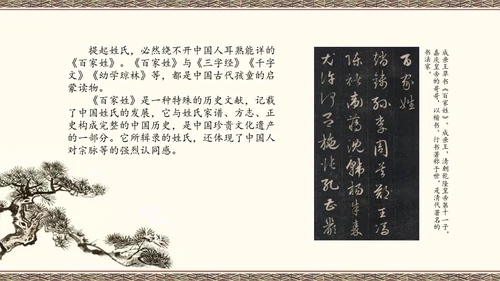 提起姓氏，必然绕不开中国人耳熟能详的
《百家姓》。《百家姓》与《三字经》《千字
文》《幼学琼林》等，都是中国古代孩童的启
蒙读物。
《百家姓》是一种特殊的历史文献，记载
了中国姓氏的发展，它与姓氏家谱、方志、正
史构成完整的中国历史，是中国珍贵文化遗产
的一部分。它所辑录的姓氏，还体现了中国人
对宗脉等的强烈认同感。
百家姓
趙錢孫李周吴鄭王馮
陳褚衛蔣沈韓楊朱秦
尤許何吕施張孔曹
成亲王草书《百家姓》。成亲王，清朝乾隆皇帝第十一子，
嘉庆皇帝的哥哥，以楷书、行书著称于世，是清代著名的
书法家。